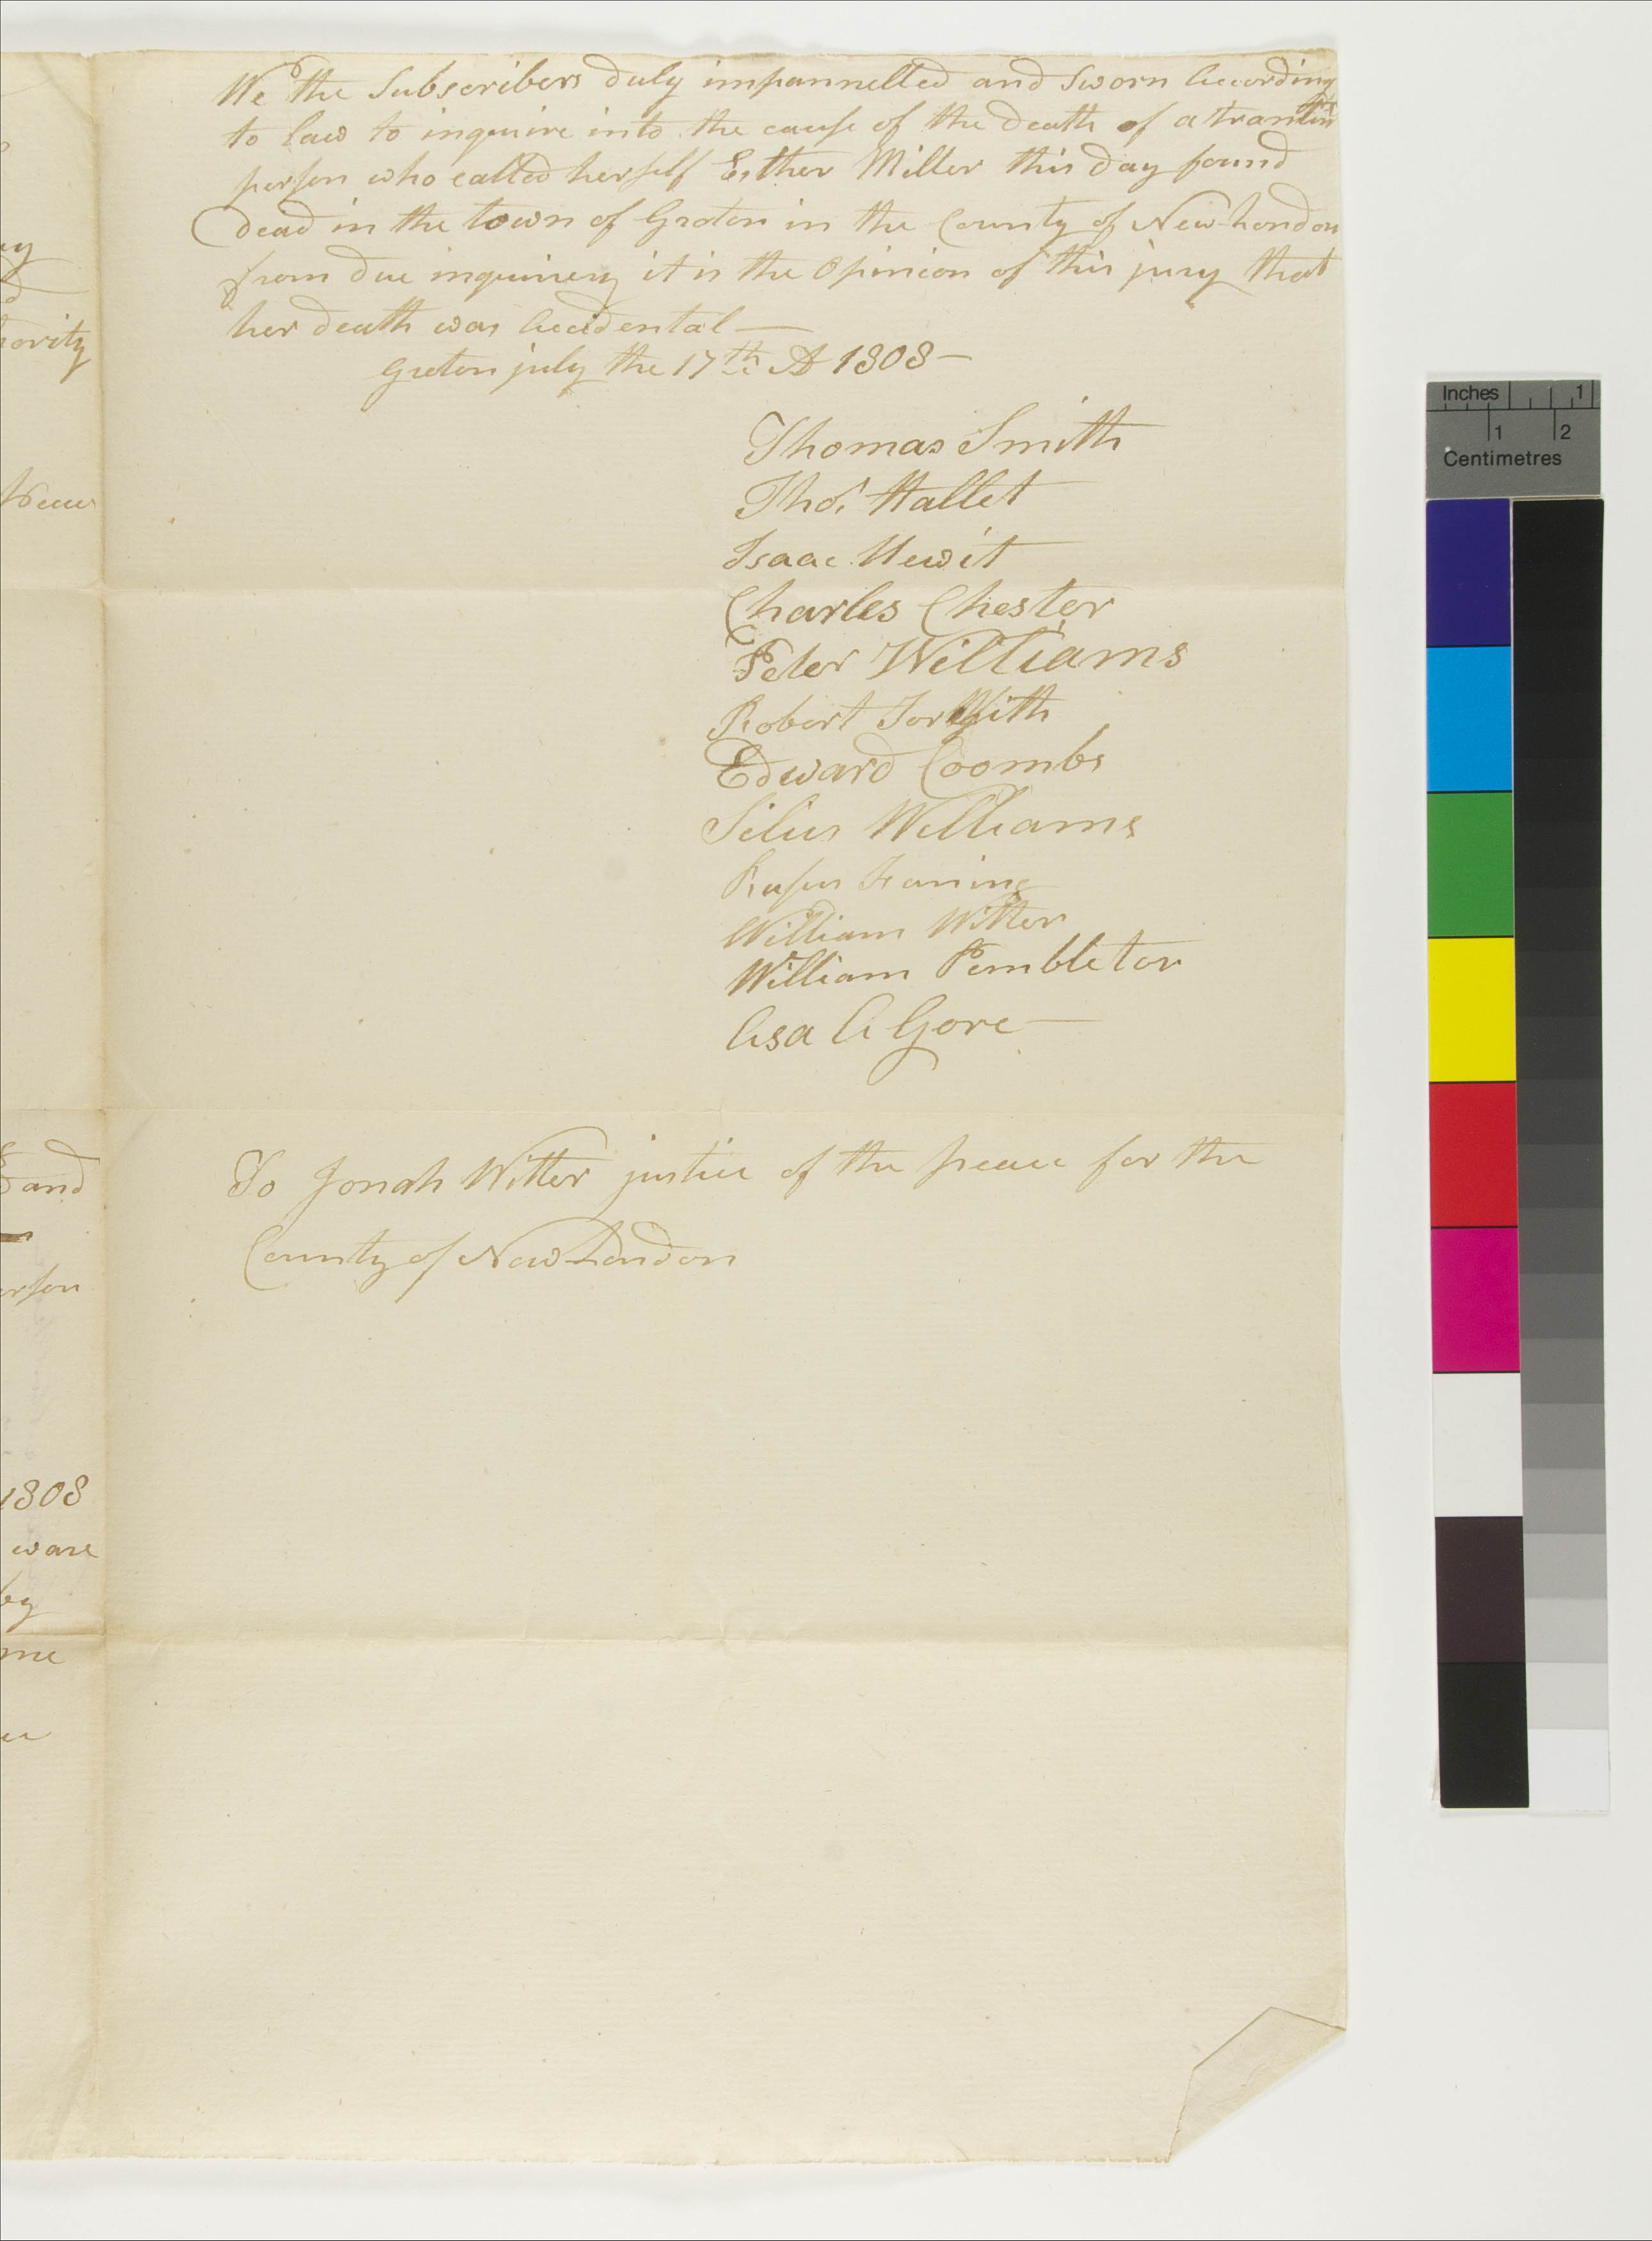 We the Subscribers duly impannelled and Sworn According
to law to inquire into the cause of the death of a
person who called herself Esther Miller this day found
dead in the town of Groton in the County of New-London
from due inquirery it is the Opinion of this jury that
her death was Accidental —
Groton july the 17th AD 1808 —
Thomas Smith
Thos. Hallet
Isaac Hewit
Charles Chester
Peter Williams
Robert
Edward Coombs
Silius Williams
Rufus Faning
William Witter
William Pembleton
Asa A Gore —
To Jonah Witter justice of the peace for the
County of New London
and
1808
ware
by
me
Inches 1
1 2
Centimetres